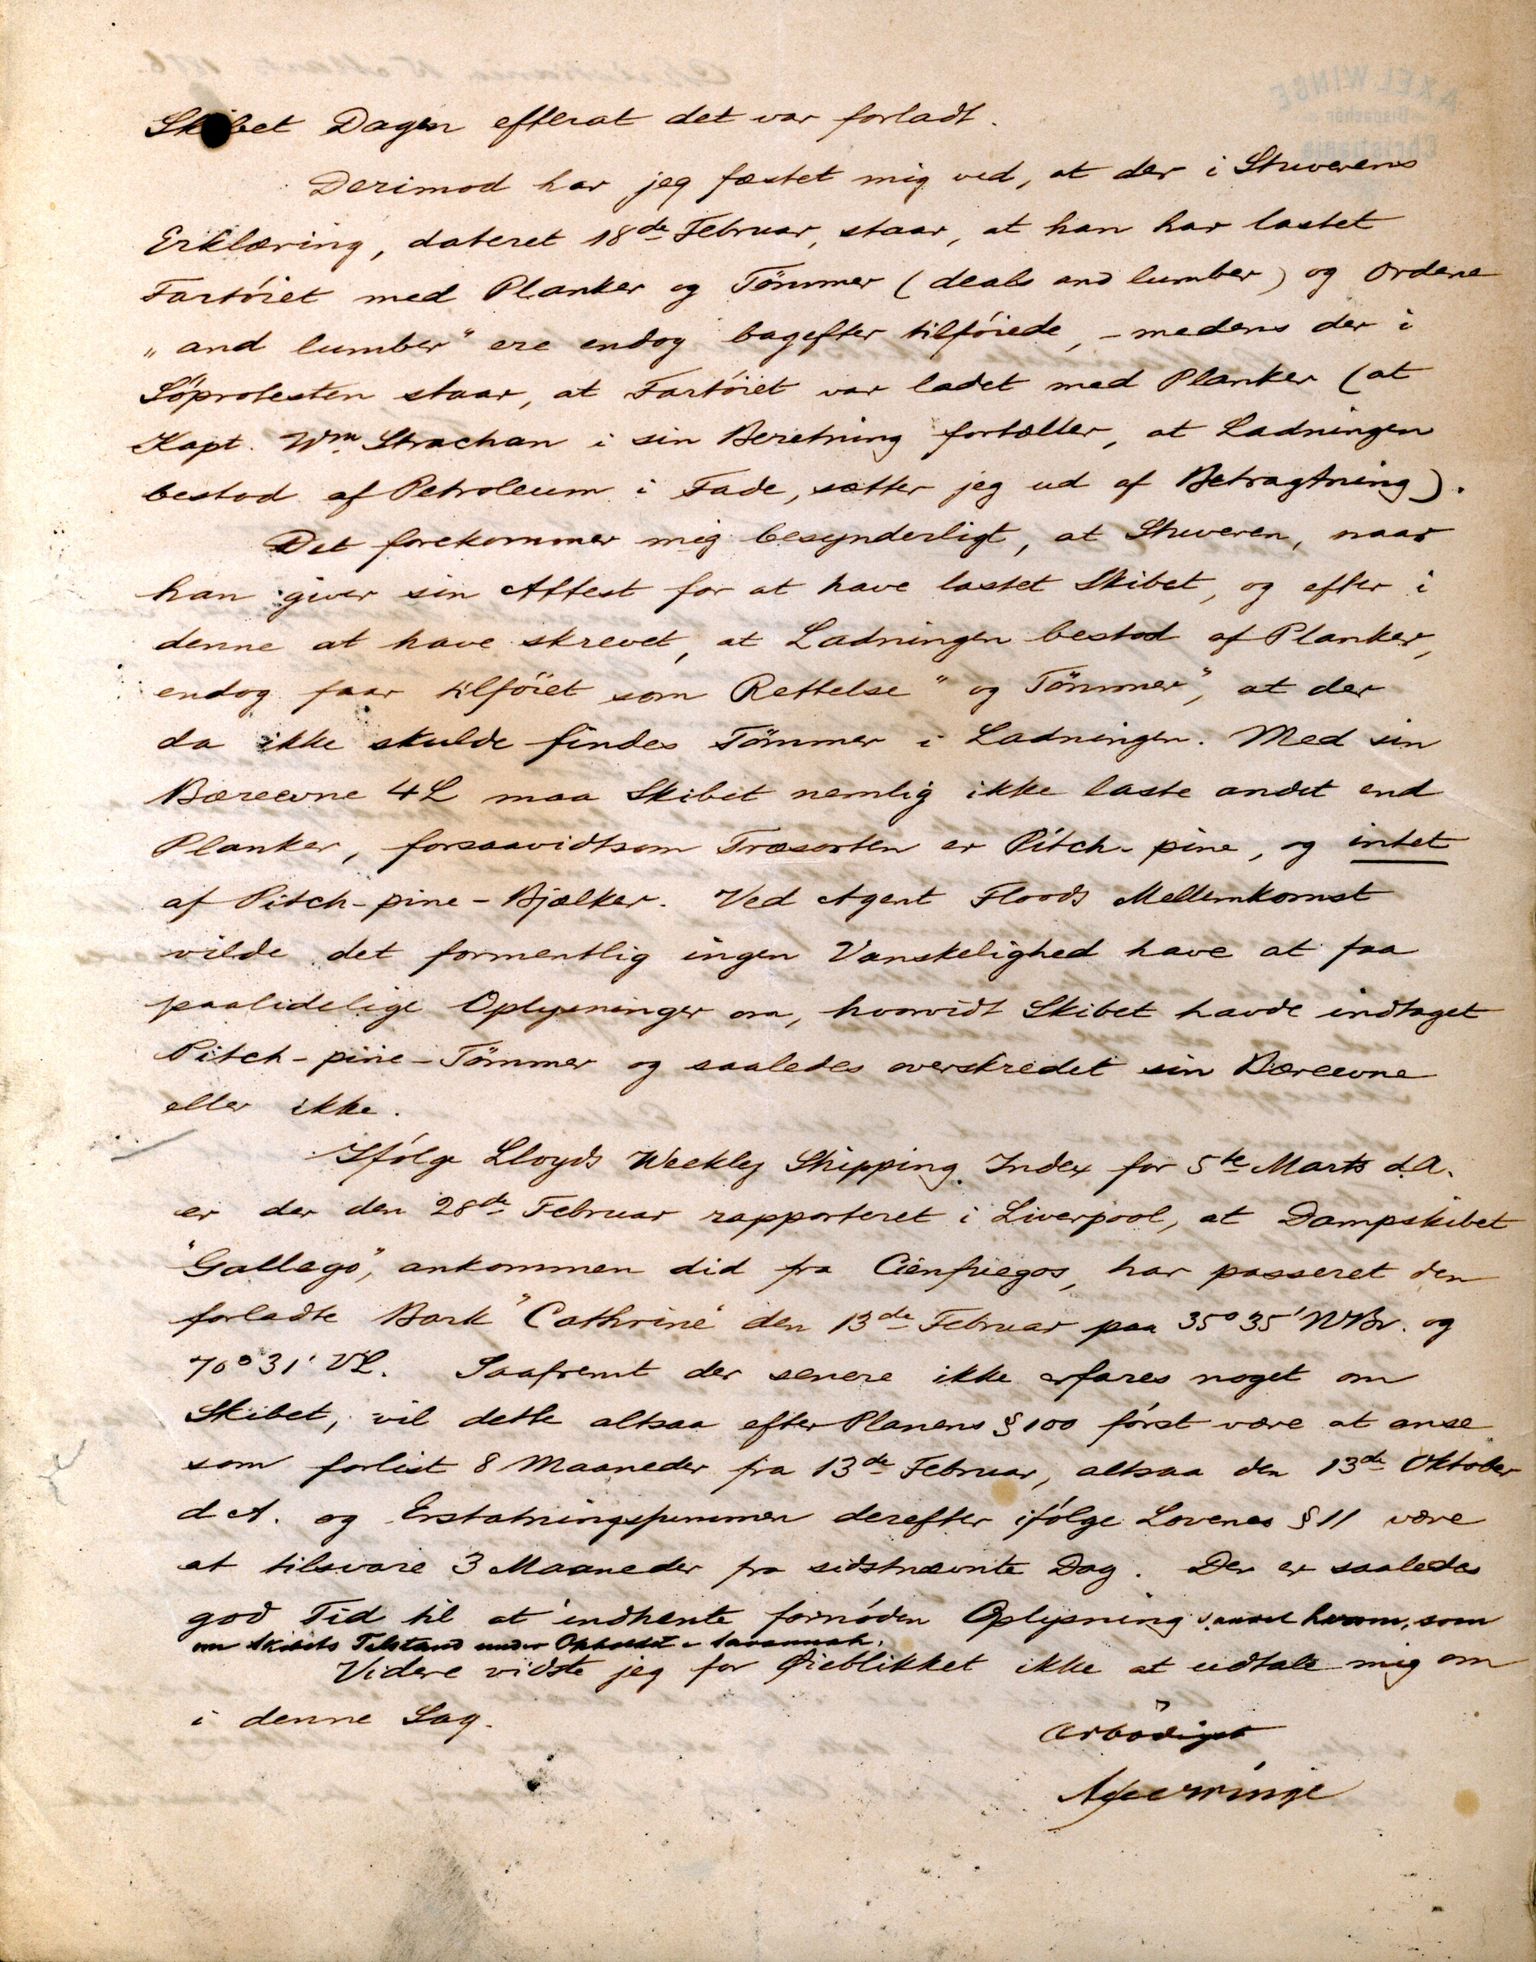 Skibet Dagen efterat det var forladt.
Derimod har jeg fæstet mig ved, at der i Stuverens
Erklæring, dateret 18de Februar, staar, at han har lastet
Fartöiet med Planker og Tömmer (deals and lumber) og Ordene
„and lumber" ere endog bagefter tilföiede, - medens der i
Söprotesten staar, at Fartöiet var ladet med Planker (at
Kapt. Wm. Strachan i sin Beretning fortæller, at Ladningen
bestod af Petroleum i Fade, sætter jeg ud af Betragtning).
Det forekommer mig besynderligt, at Stuveren, naar
han giver sin Attest for at have lastet Skibet, og efter i
denne at have skrevet, at Ladningen bestod af Planker,
endog faar tilföiet som Rettelse "og Tömmer", at der
da ikke skulde findes Tömmer i Ladningen. Med sin
Bæreevne 4L maa Skibet nemlig ikke laste andet end
Planker, forsaavidtsom Træsorten er Pitch-pine, og intet
af Pitch-pine-Bjælker. Ved Agent Floods Mellemkomst
vilde det formentlig ingen Vanskelighed have at faa
paalidelige Oplysninger om, hvorvidt Skibet havde indtaget
Pitch-pine-Tömmer og saaledes overskredet sin Bæreevne
eller ikke.
Ifölge Lloyds Weekley Shipping Index for 5te Marts d.A.
er der den 28de Februar rapporteret i Liverpool, at Dampskibet
"Gallego", ankommen did fra Cienfuegos, har passeret den
forladte Bark "Cathrine" den 13de Februar paa 35°35' NBr. og
70°31' VL. Saafremt der senere ikke erfares noget om
Skibet, vil dette altsaa efter Planens §100 först være at anse
som forlist 8 Maaneder fra 13de Februar, altsaa den 13de Oktober
d.A. og Erstatningssummen derefter ifölge Lovenes §11 være
at tilsvare 3 Maaneder fra sidstnævnte Dag. Der er saaledes
god Tid til at indhente fornöden Oplysning saavel herom, som
om Skibets Tilstand under Opholdet i Savannah.
Videre vidste jeg for Øieblikket ikke at udtale mig om
i denne Sag.
Ærbödigst
Axel Winge
AXEL WINGE
Dispachör
Christiania